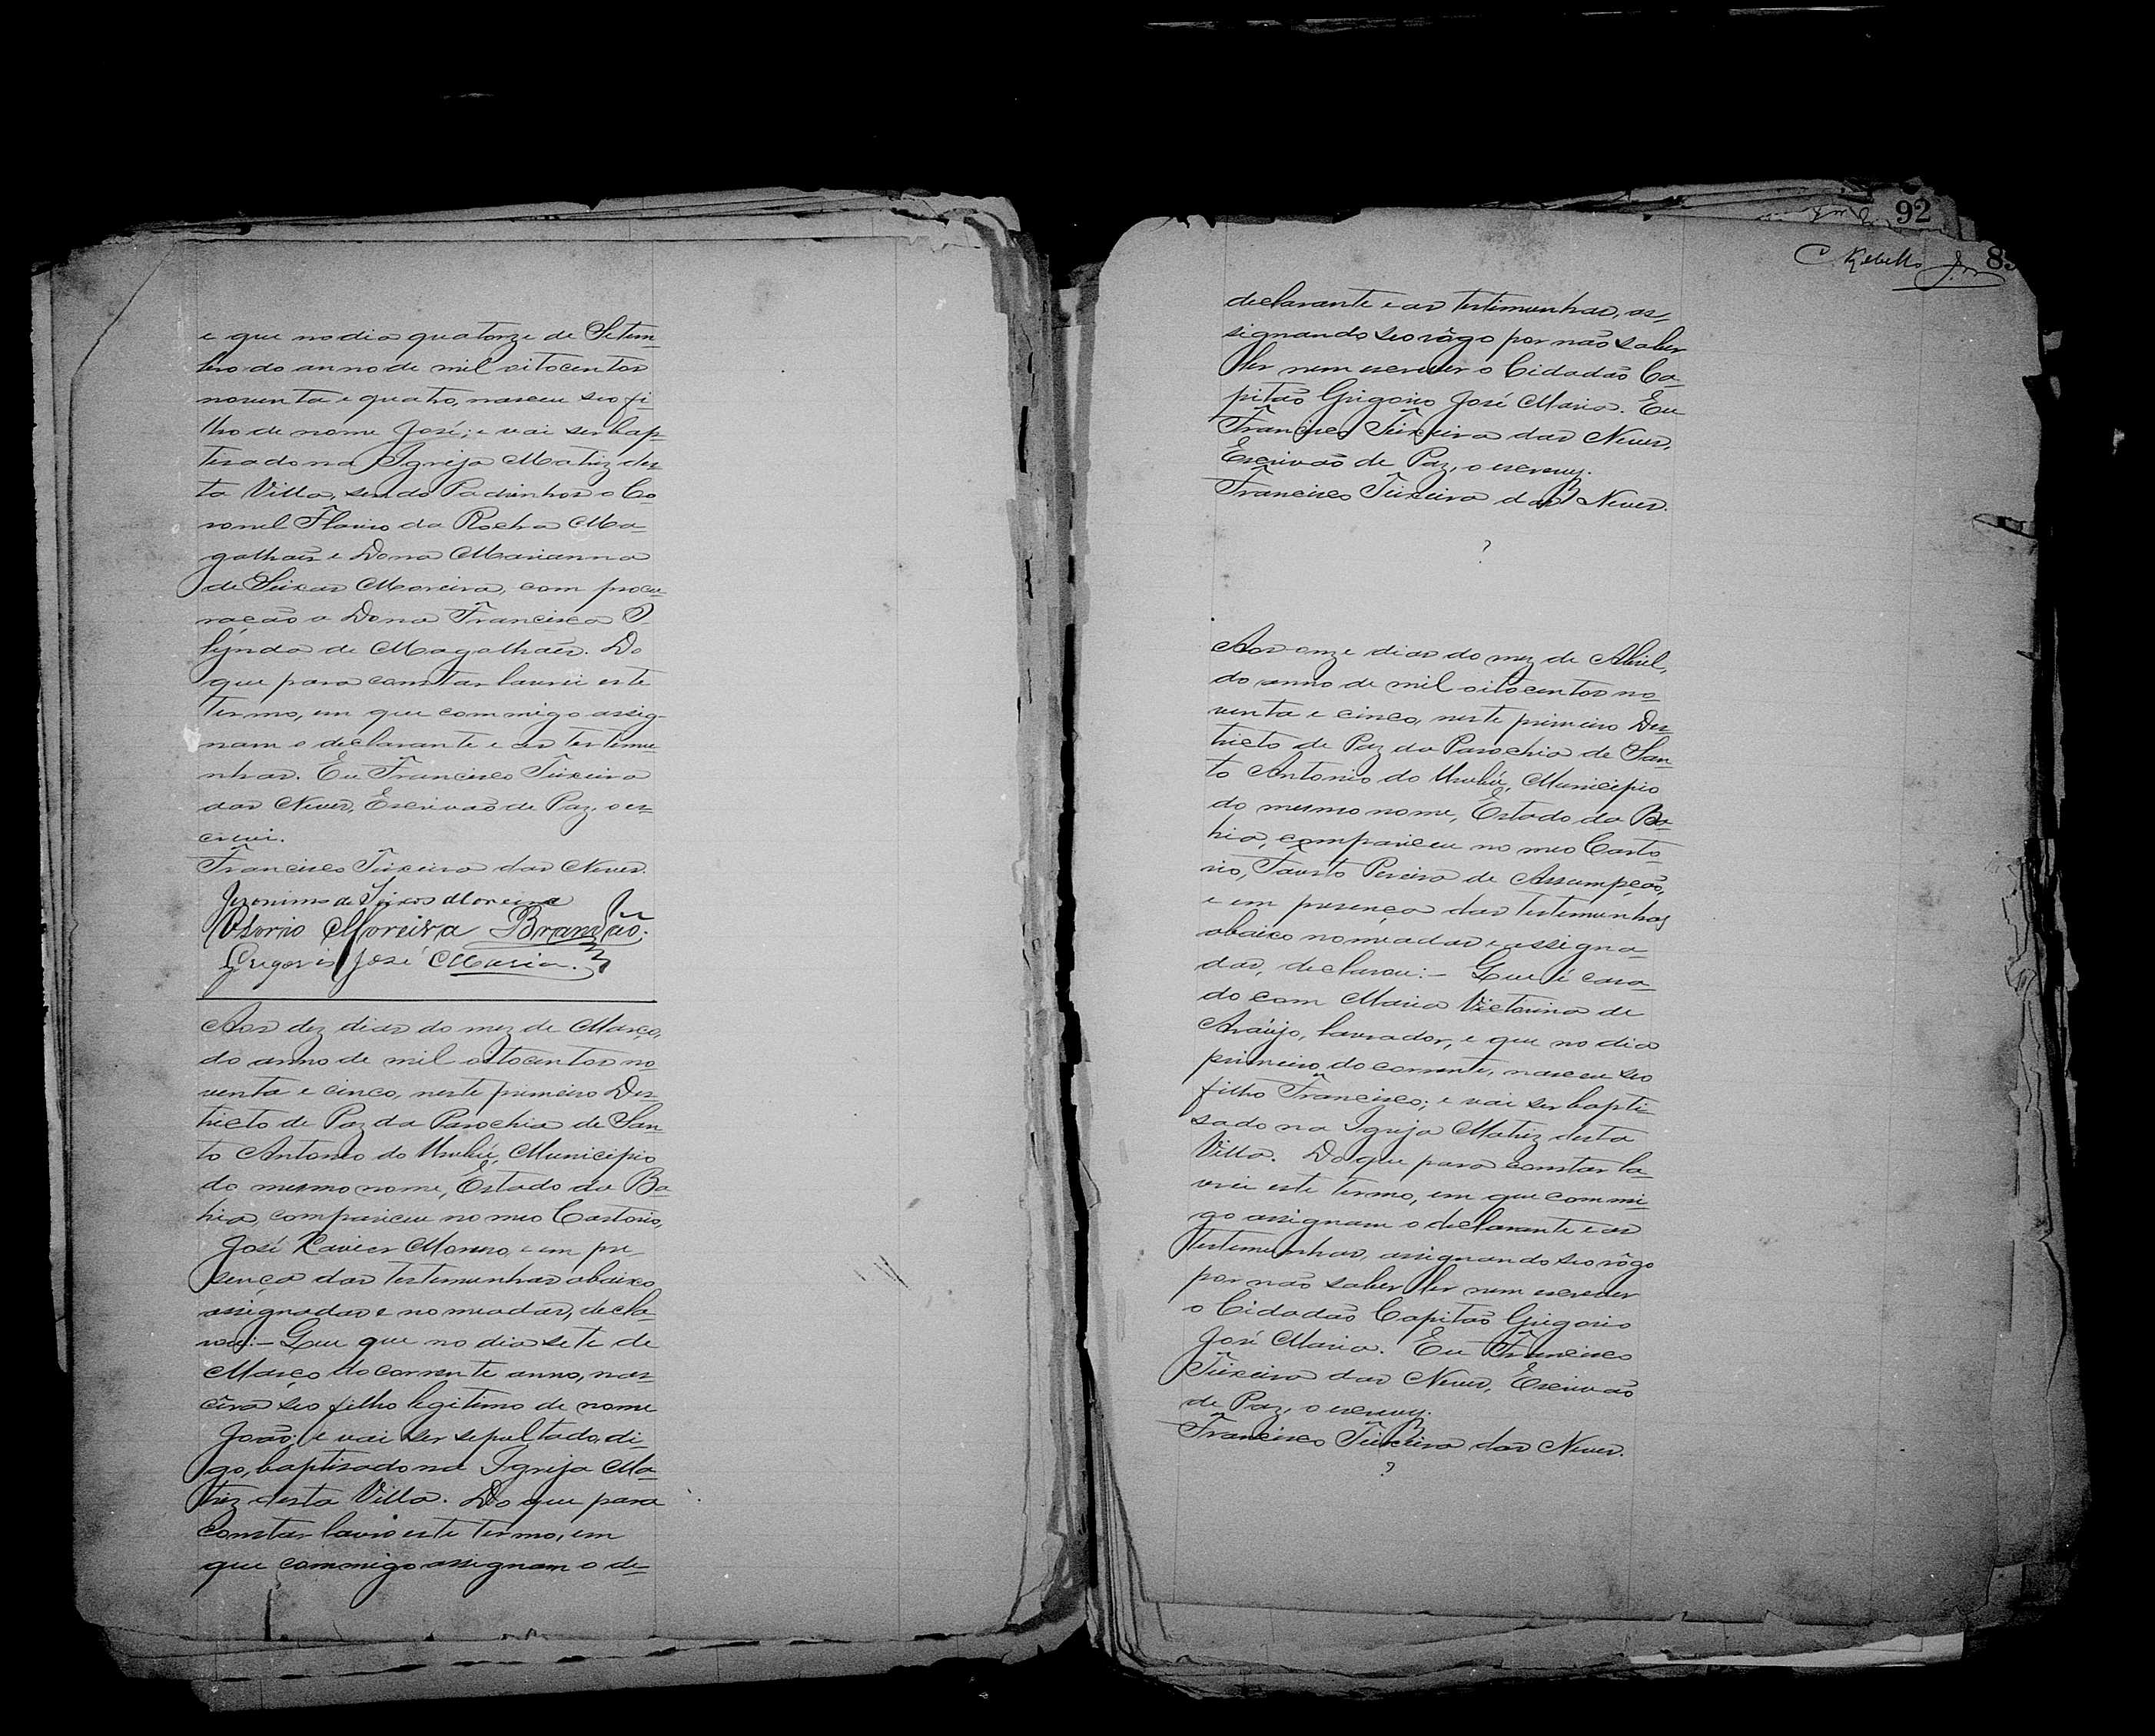 e que no dia quatorze de Setem-
bro do anno de mil oitocentos
noventa e quatro, nasceu seo fi-
lho de nome José; e vai ser bap-
tisado na Igreja Matriz des-
ta Villa, sendo Padrinhos o Co-
ronel Flavio da Rocha Ma-
galhães e Dona Marianna
de Seixas Moreira, com procu-
ração a Dona Francisca
de Magalhães. Do
que para constar lavrei este
termo, em que commigo assig-
nam o declarante e as testemu-
nhas. Eu Francisco Teixeira
das Neves, Escrivão de Paz, o es-
crevi.
Francisco Teixeira das Neves.
Jeronimo de Seixas Moreira
Moreira Brandão.
Gregorio José Maria.
Aos dez dias do mez de Março,
do anno de mil oitocentos no
venta e cinco, neste primeiro Des-
tricto de Paz da Parochia de San
to Antonio do Urubú, Municipio
do mesmo nome, Estado da Ba-
hia, compareceu no meo Cartorio,
José Xavier Moreno, e em pre-
sença das testemunhas abaixo
assignadas e nomeadas, decla-
rou:- Que que no dia sete de
Março do corrente anno, nas-
cêra seo filho legitimo de nome
João; e vai ser sepultado, di-
go, baptisado na Igreja Ma-
triz desta Villa. Do que para
constar lavro este termo, em
que commigo assignam o de-
92
C. Rebello Jor
declarante e as testemunhas, as-
signando seo rôgo por não saber
ler nem escrever o Cidadão Ca-
pitão Grigorio José Maria. Eu
Francisco Teixeira das Neves,
Escrivão de Paz, o escrevy.
Francisco Teixeira das Neves.
?
Aos onze dias do mez de Abril,
do anno de mil oitocentos no-
venta e cinco, neste primeiro Des-
tricto de Paz da Parochia de San-
to Antonio do Urubú, Municipio
do mesmo nome, Estado da Ba-
hia, compareceu no meo Carto-
rio, Fausto Pereira de Assumpção,
e em presença das testemunhas
abaixo nomeadas e assigna-
das, declarou:- Que é casa-
do com Maria Victorina de
Araújo, lavrador, e que no dia
primeiro do corrente, nasceu seo
filho Francisco; e vai ser bapti-
sado na Igreja Matriz desta
Villa. Do que para constar la-
vrei este termo, em que commi-
go assignam o declarante e as
testemunhas, assignando seo rôgo
por não saber ler nem escrever
o Cidadão Capitão Grigorio
José Maria. Eu Francisco
Teixeira das Neves, Escrivão
de Paz, o escrevy.
Francisco Teixeira das Neves.
?